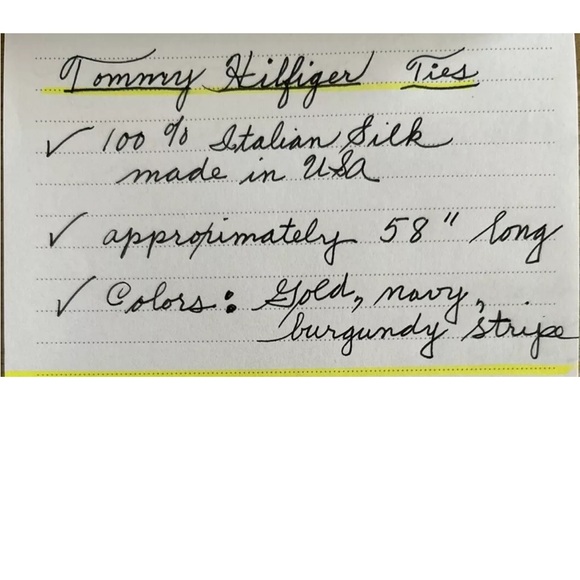 Tommy Hilfiger Ties
✓ 100% Italian Silk
made in USA
✓ approximately 58" long
✓ Colors: Gold, navy,
burgundy stripe